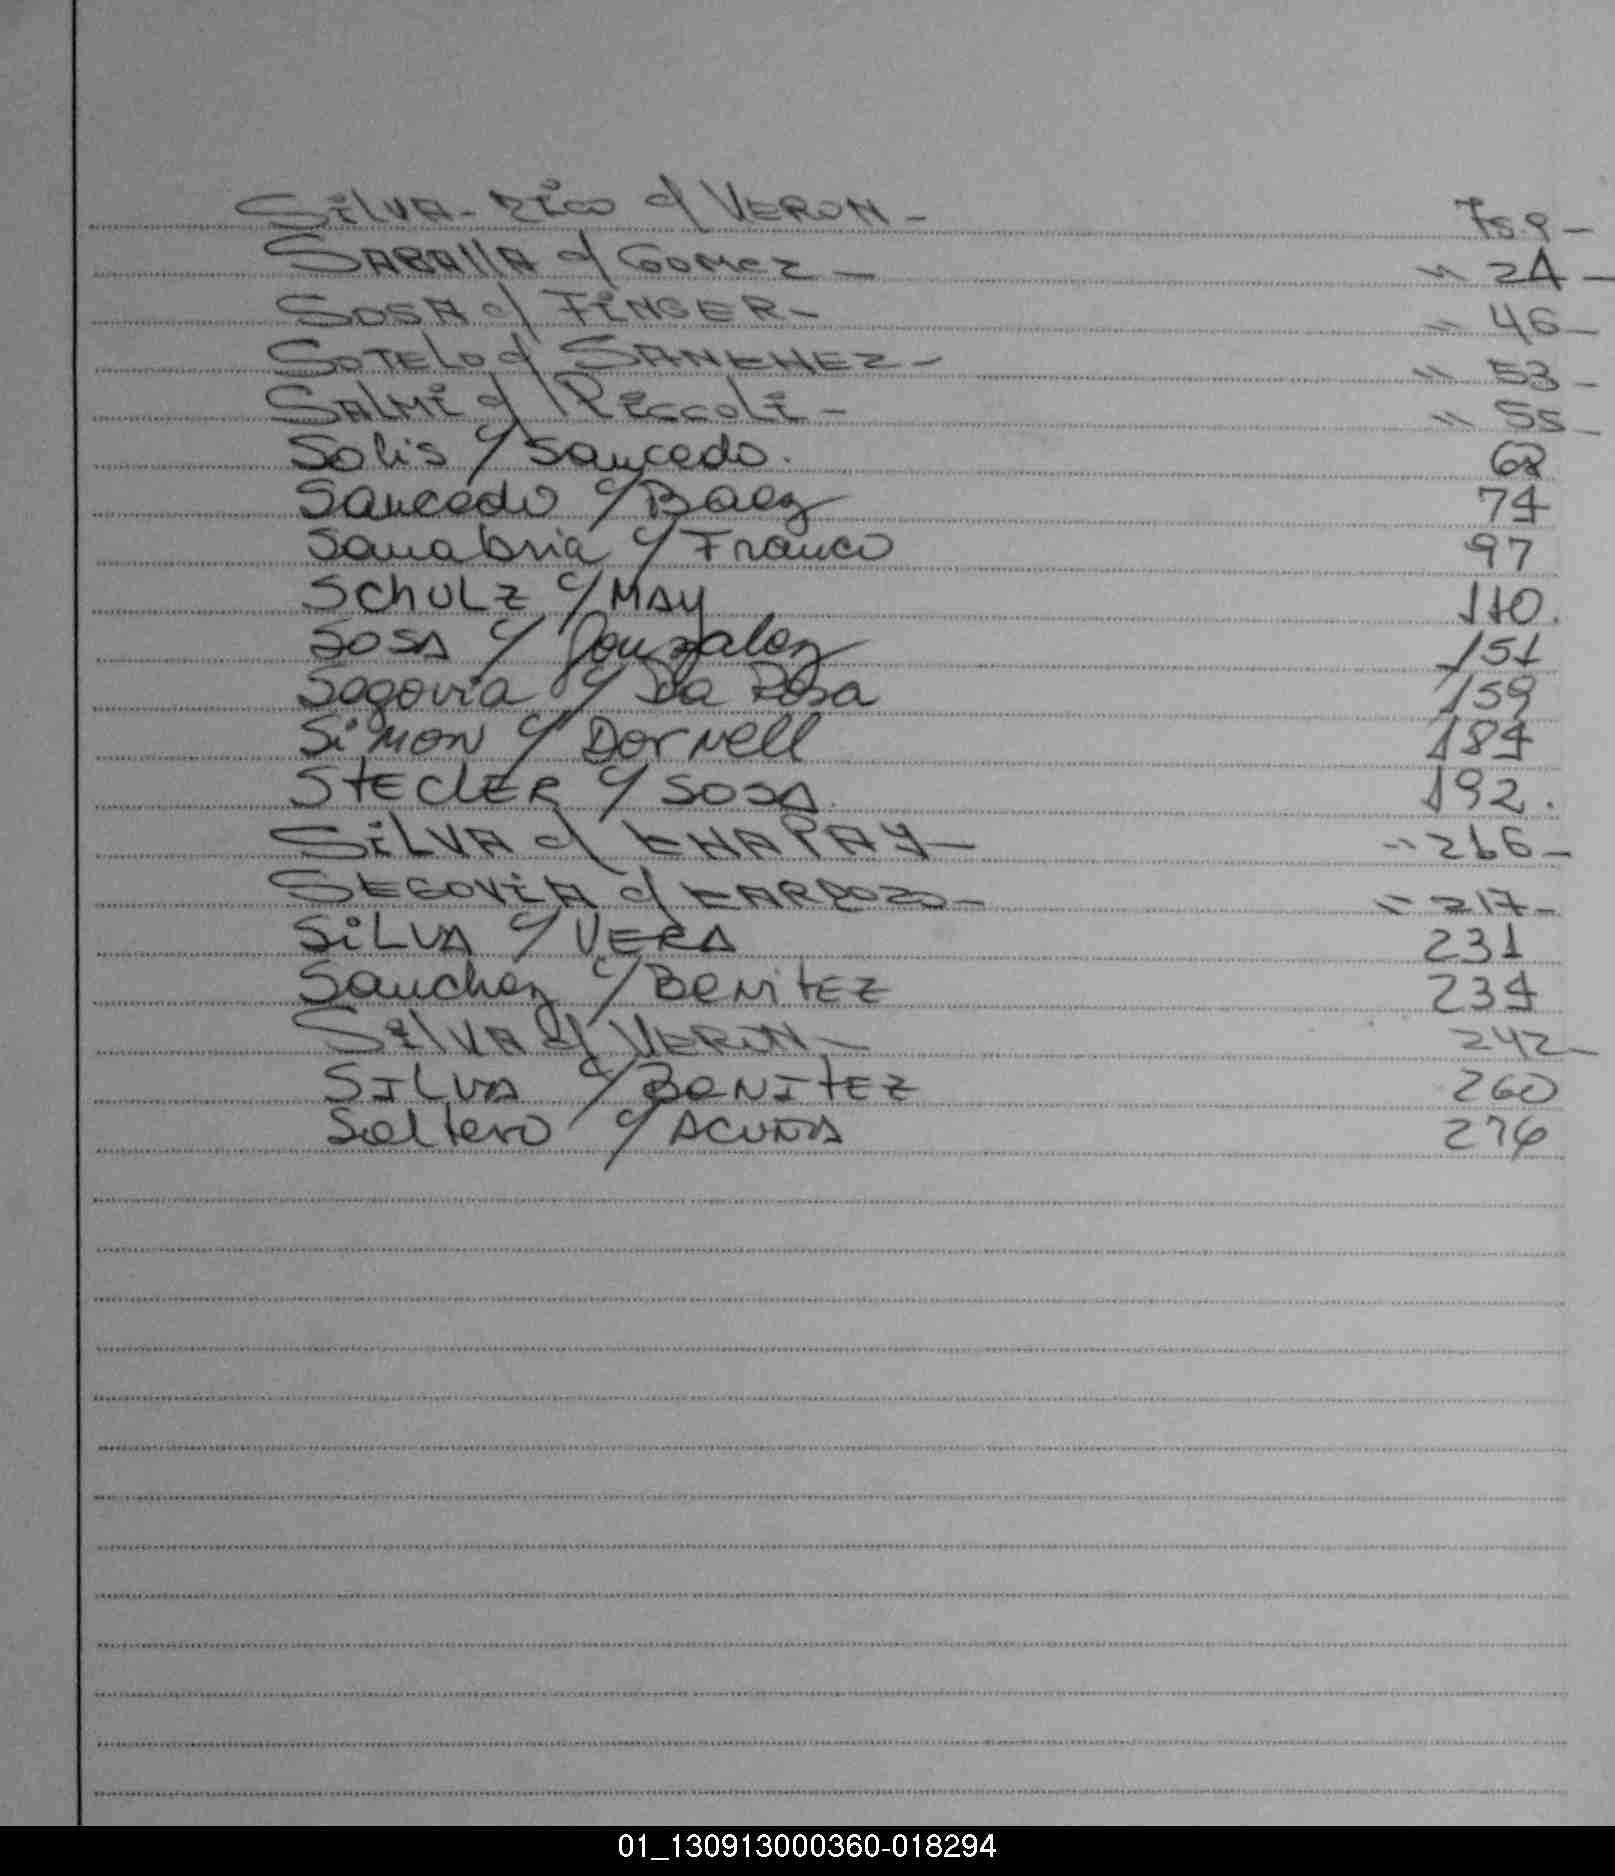 SiLVA-Rico c/ VERON - Fs. 9 -
SABAllA c/ GOMEZ - " 24 -
SOSA c/ FiNGER - " 46 -
SOTELO c/ SANCHEZ - " 53 -
SALMi c/ Piccoli - " 55 -
Solis c/ Saucedo. 62
Saucedo c/ Baez 74
Sanabria c/ Franco 97
SchULZ c/ MAY 110.
SOSA c/ Gonzalez 151
Segovia c/ Da Rosa 159
SiMON c/ DorNell 184
StEClER c/ SOSA. 192.
SiLVA c/ CHAPAY - " 216 -
SEGOViA c/ CARDOZO - " 217 -
SiLVA c/ VERA 231
Sanchez c/ BENitEZ 234
SilVA c/ VERON - 242 -
SILVA c/ BENITEZ 260
Soltero c/ ACUÑA 276
01_130913000360-018294